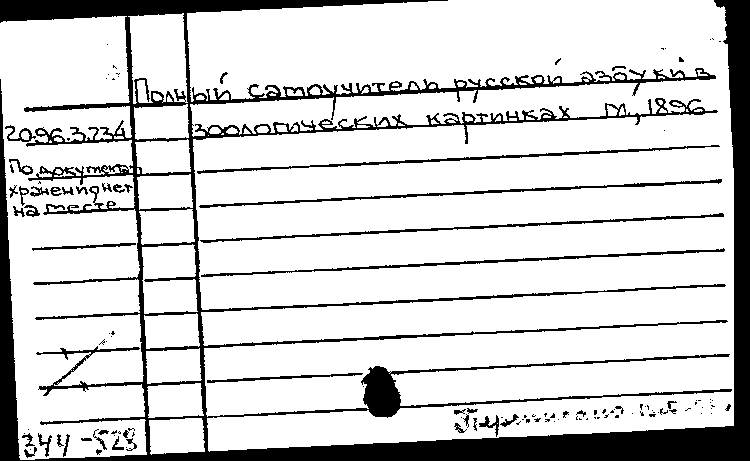 Полный самоучитель русской азбуки в
20.96.3.234 зоологических картинках М., 1896
По документам
хранения нет
на месте
344-528
Переписано